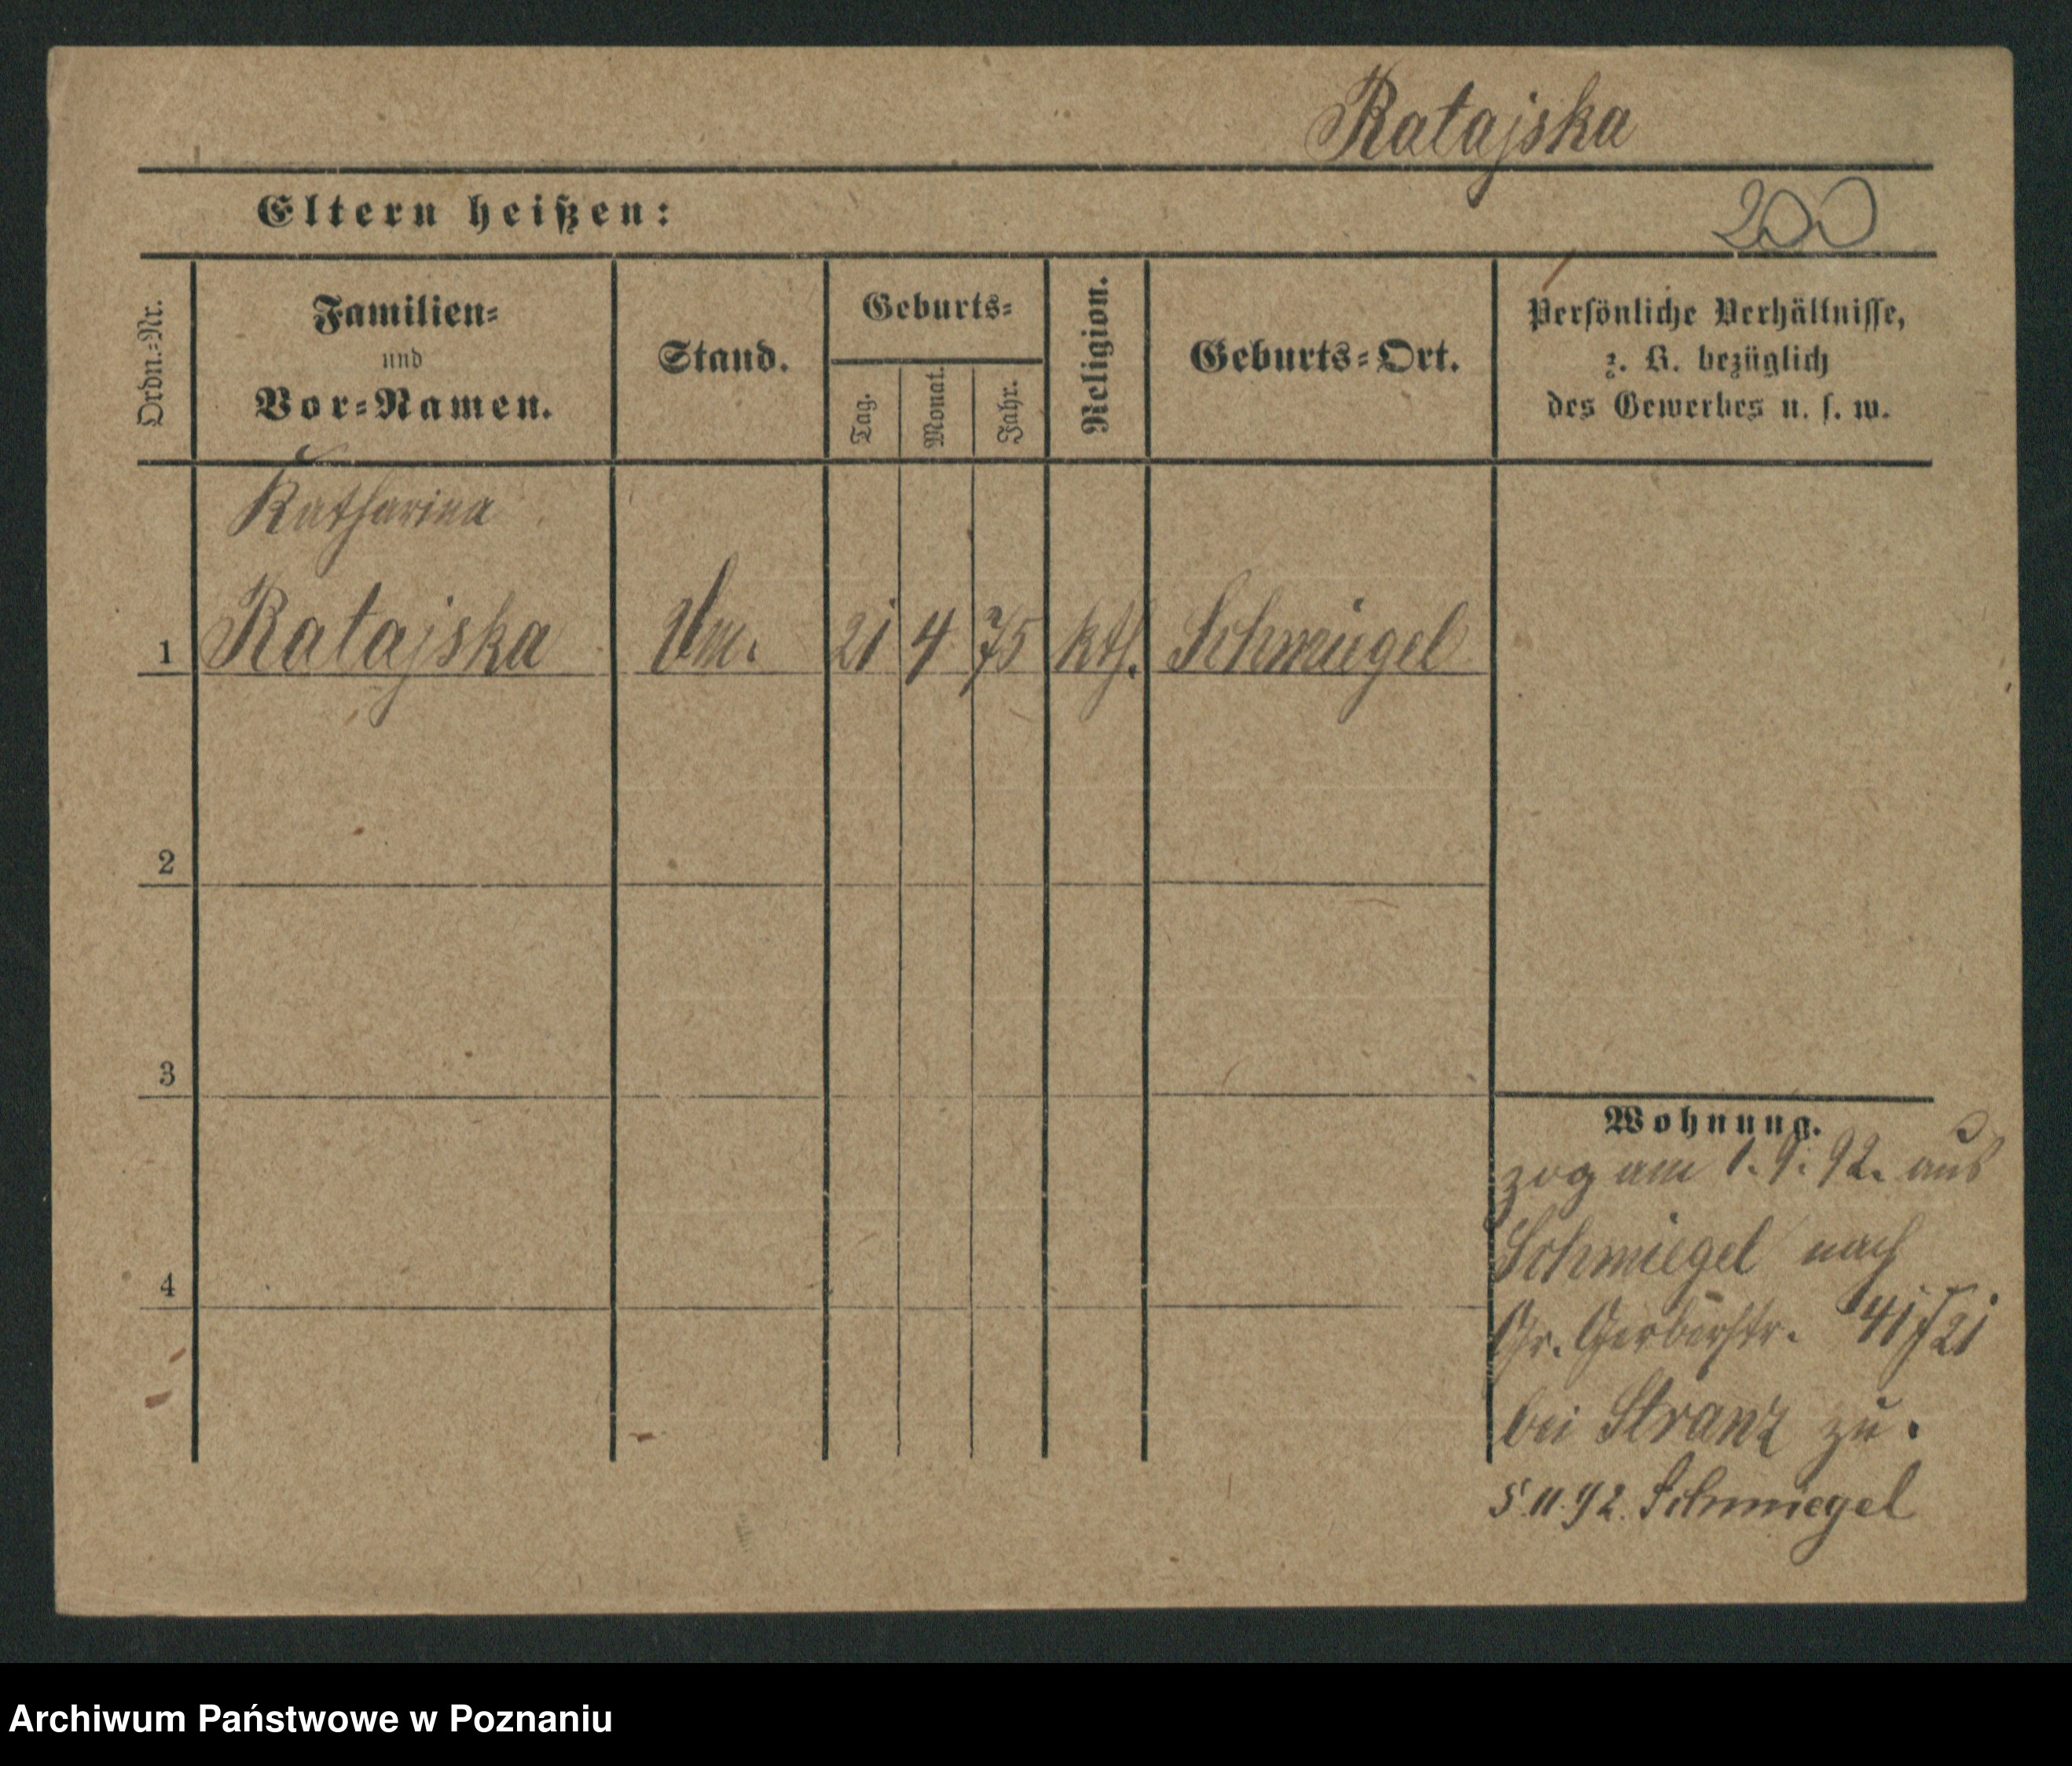 Ratajska
Eltern heißen:
200
Ordn.=Nr.
Familien=
und
Vor=Namen.
Stand.
Geburts=
Tag.
Monat.
Jahr.
Religion.
Geburts=Ort.
Persönliche Verhältnisse,
z. B. bezüglich
des Gewerbes u. s. w.
Katharina
1 Ratajska 21 4 75 kth. Schmiegel
2
3
4
Wohnung.
zog am 1. 9. 92. aus
Schmiegel nach
Gr. Gerberstr. 41
bei Stranz zu.
5.11.92. Schmiegel
Archiwum Państwowe w Poznaniu